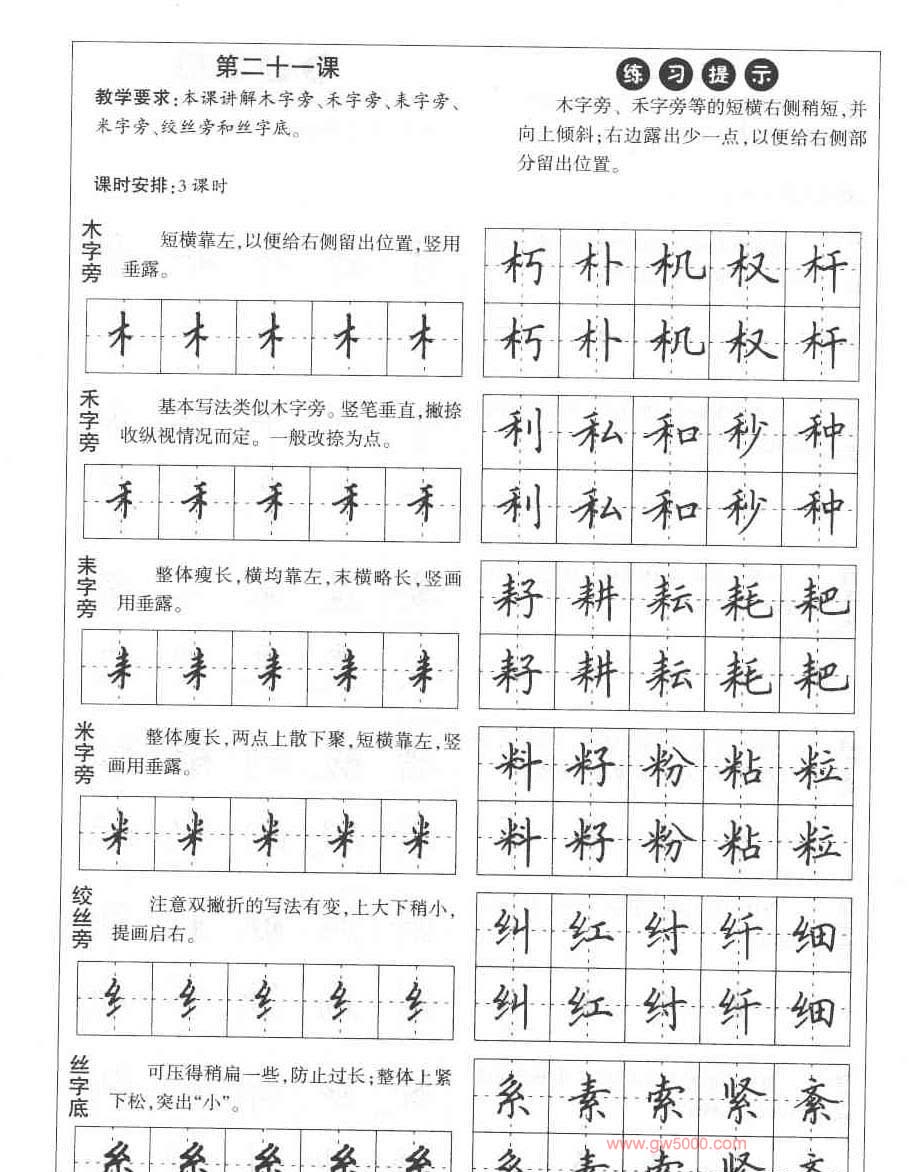 第二十一课
教学要求:本课讲解木字旁、禾字旁、耒字旁、
米字旁、绞丝旁和丝字底。
课时安排:3课时
练习提示
木字旁、禾字旁等的短横右侧稍短,并
向上倾斜;右边露出少一点,以便给右侧部
分留出位置。
木字旁
短横靠左,以便给右侧留出位置,竖用
垂露。
木木木木木
朽朴机权杆
朽朴机权杆
禾字旁
基本写法类似木字旁。竖笔垂直,撇捺
收纵视情况而定。一般改捺为点。
禾禾禾禾禾
利私和秒种
利私和秒种
耒字旁
整体瘦长,横均靠左,末横略长,竖画
用垂露。
耒耒耒耒耒
耔耕耘耗耙
耔耕耘耗耙
米字旁
整体廋长,两点上散下聚,短横靠左,竖
画用垂露。
米米米米米
料籽粉粘粒
料籽粉粘粒
绞丝旁
注意双撇折的写法有变,上大下稍小,
提画启右。
纟纟纟纟纟
纠红纣纤细
纠红纣纤细
丝字底
可压得稍扁一些,防止过长;整体上紧
下松,突出“小”。
糸糸糸糸糸
系素索紧紊
www.gw5000.com